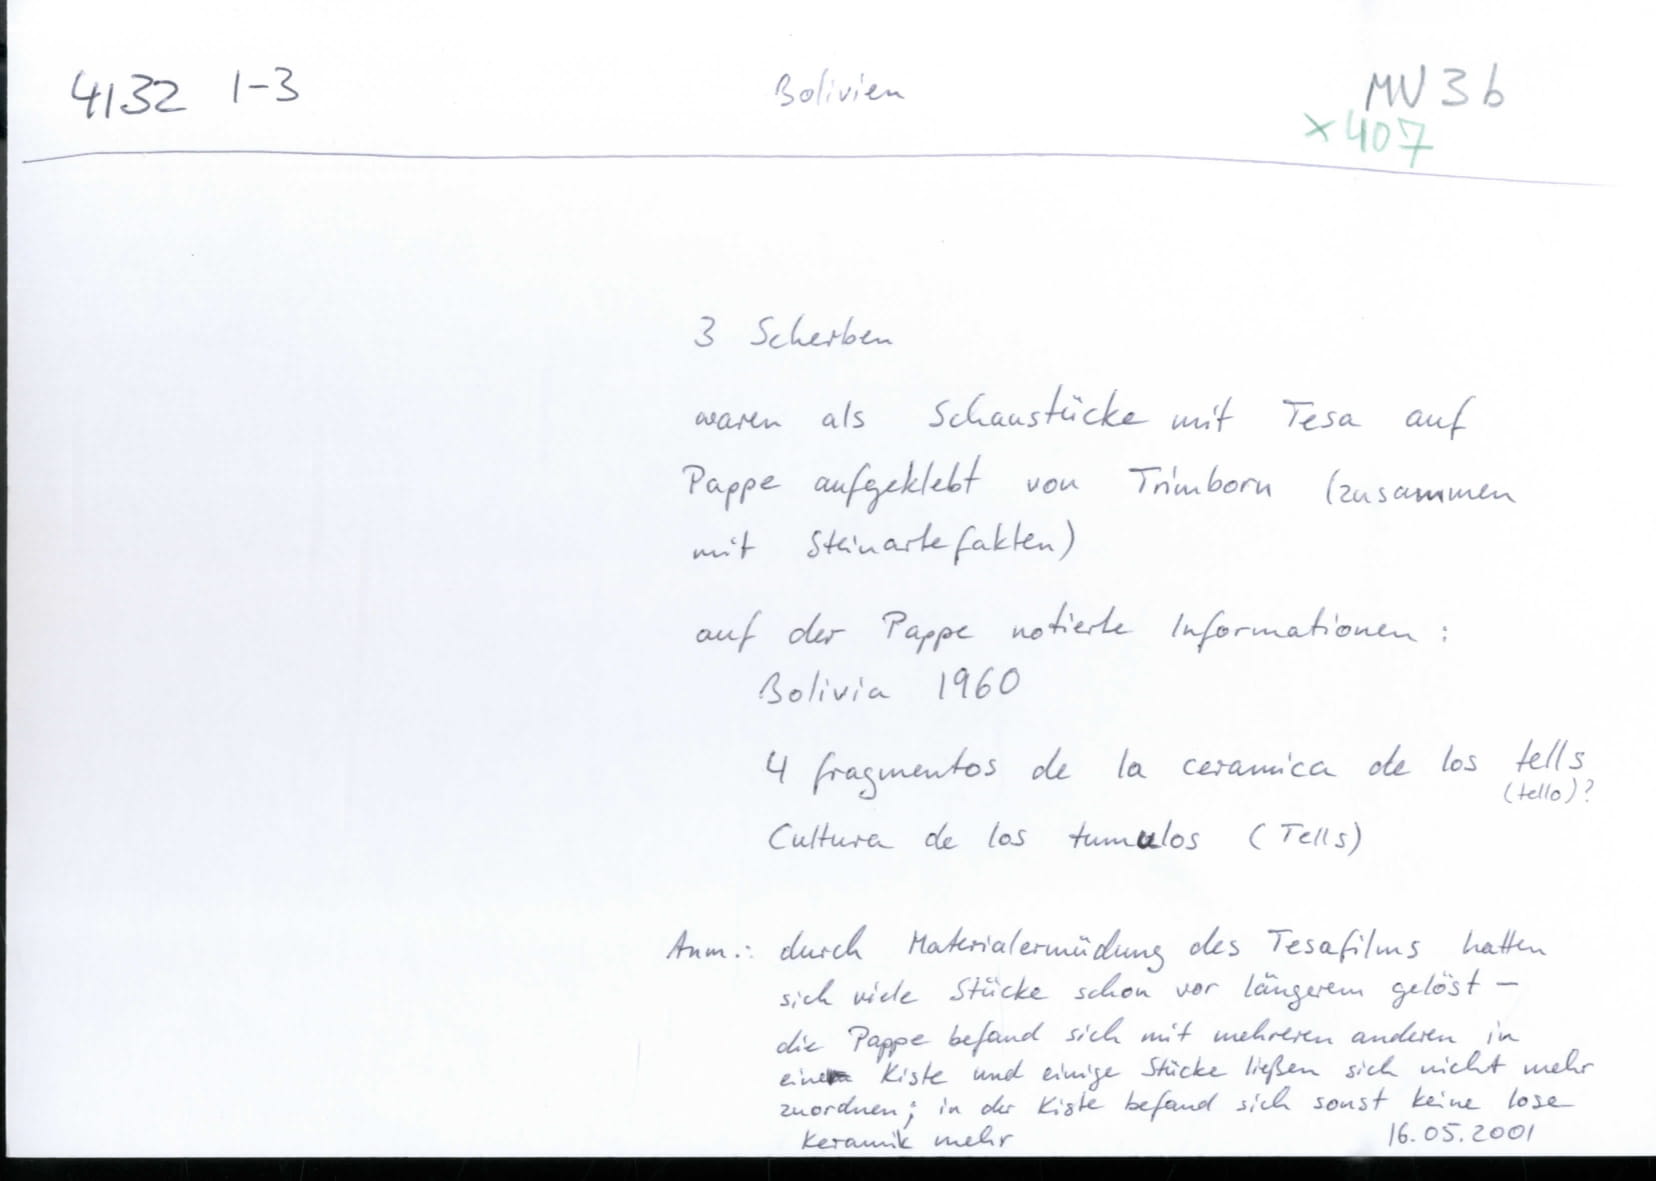 4132 1-3 Bolivien MV 3b
x407
3 Scherben
waren als Schaustücke mit Tesa auf
Pappe aufgeklebt von Trimborn (zusammen
mit Steinartefakten)
auf der Pappe notierte Informationen :
Bolivia 1960
4 fragmentos de la ceramica de los tells
(tello)?
Cultura de los tumulos (Tells)
Anm.: durch Materialermüdung des Tesafilms hatten
sich viele Stücke schon vor längerem gelöst –
die Pappe befand sich mit mehreren anderen in
einer Kiste und einige Stücke ließen sich nicht mehr
zuordnen; in der Kiste befand sich sonst keine lose
Keramik mehr 16.05.2001